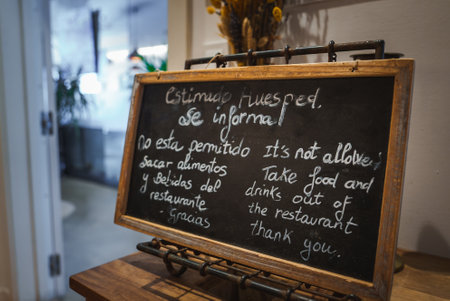 Estimado Huesped.
Se informa!
No esta permitido
sacar alimentos
y Bebidas del
restaurante
- Gracias
It's not allowed
Take food and
drinks out of
the restaurant
thank you.